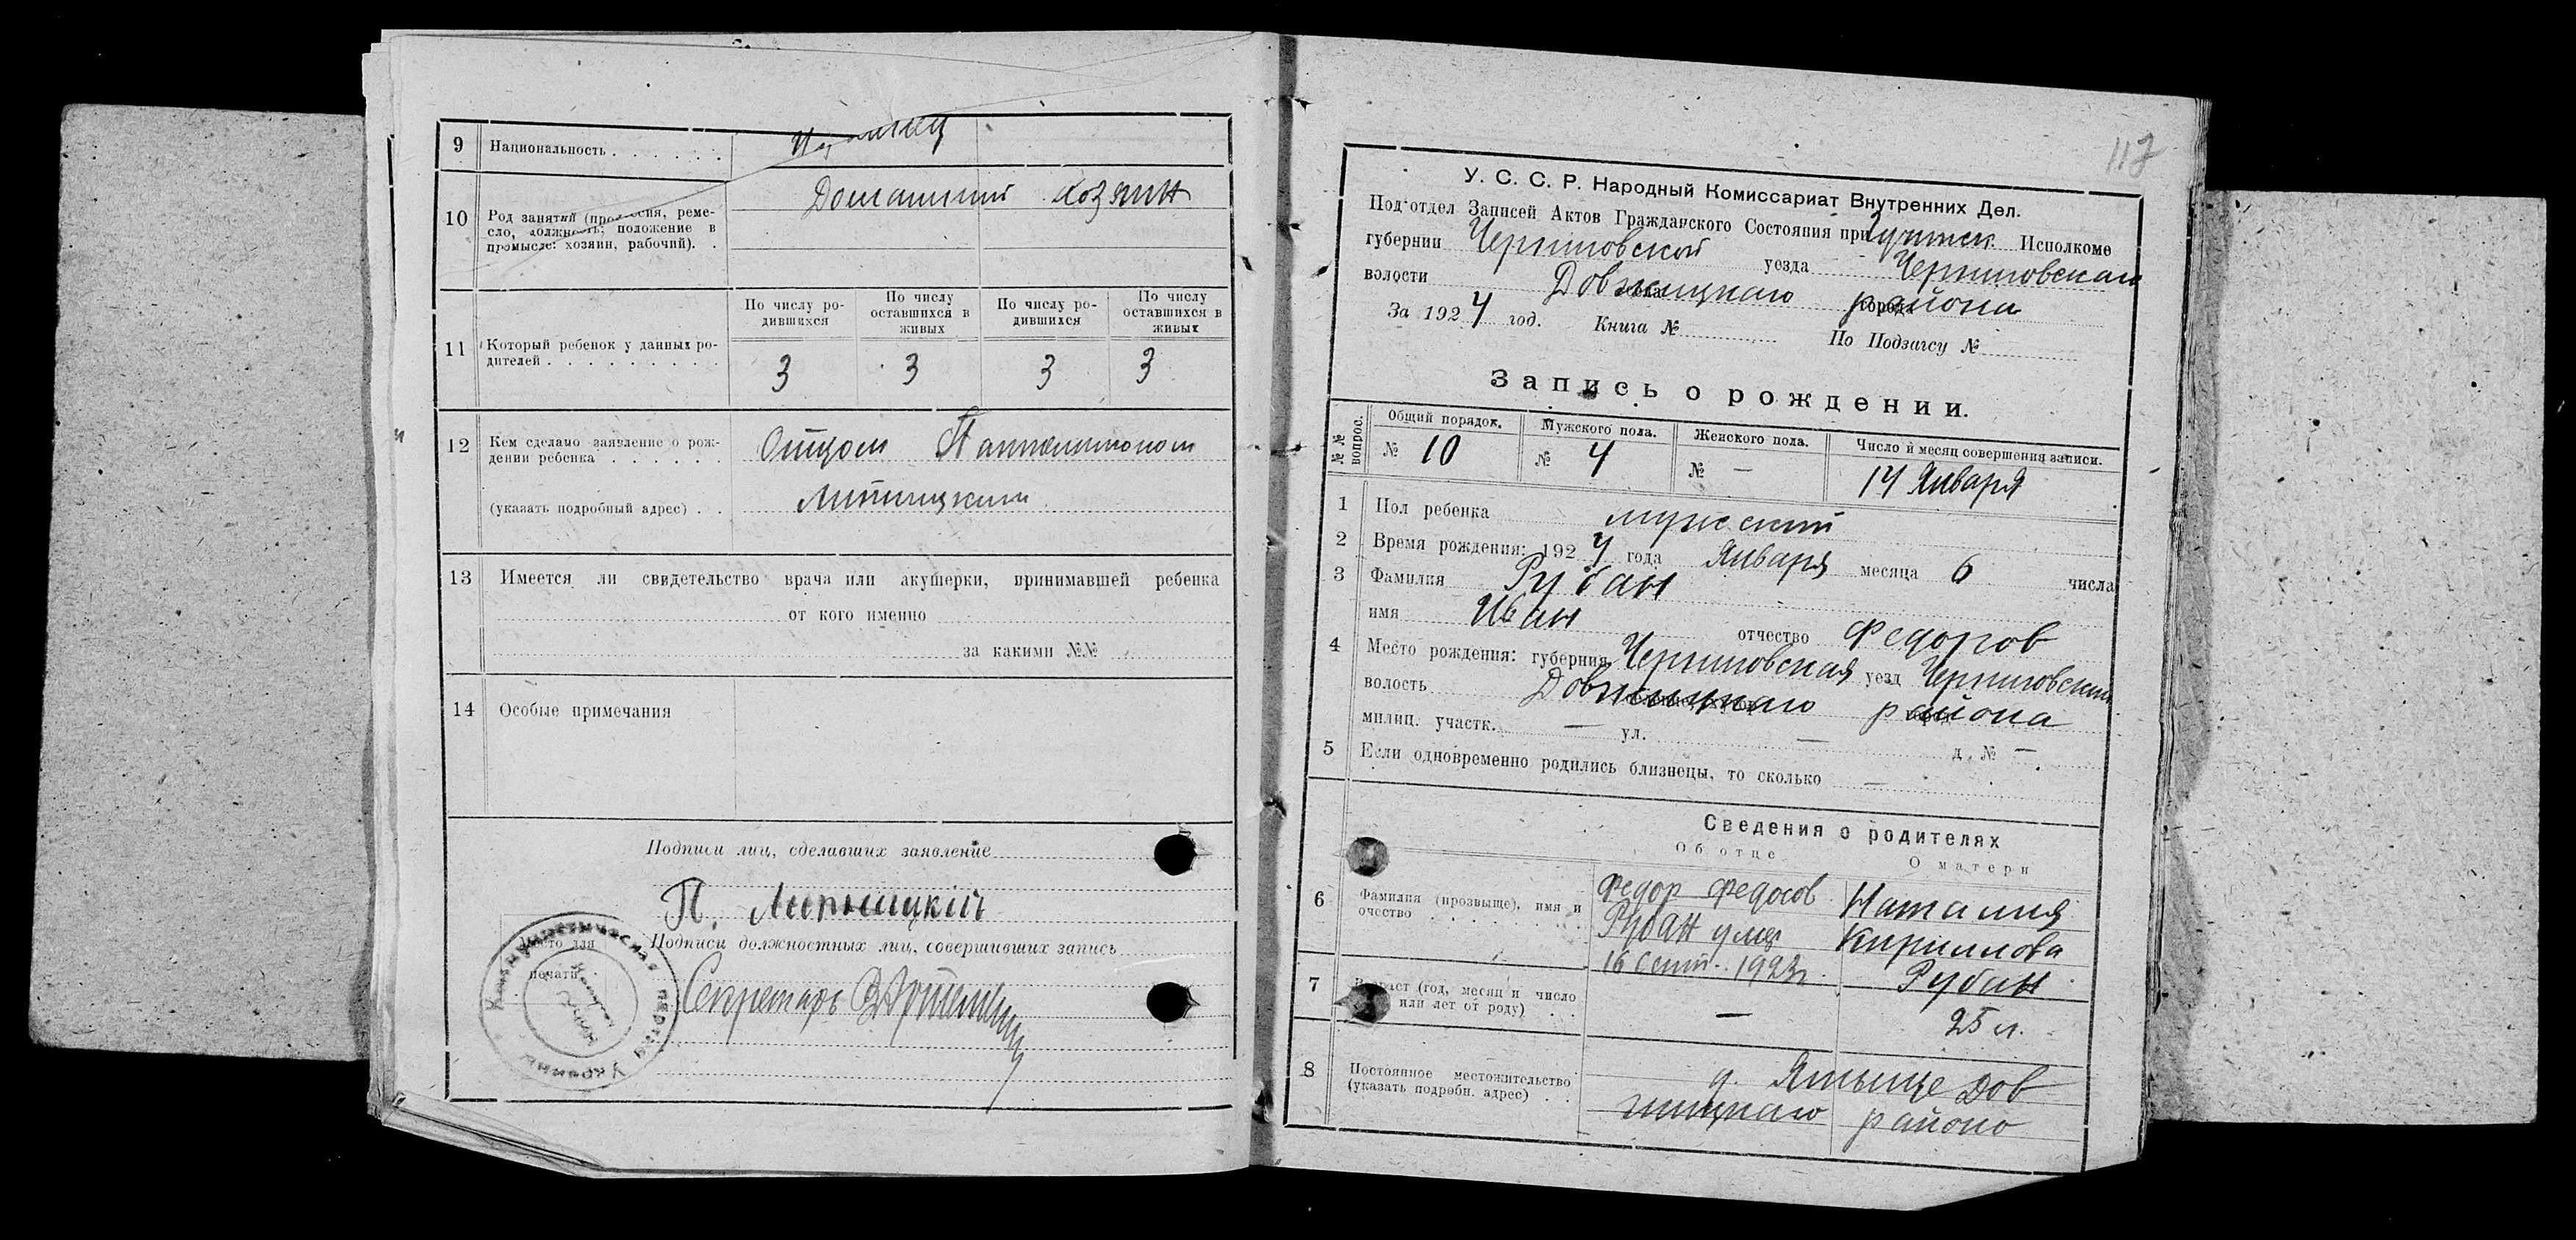 9 Национальность
10 Род занятий (профессия, реме-
сло, должность, положение в
промысле: хозяин, рабочий).
Домашний хозяин
По числу ро-
дившихся
По числу
оставшихся в
живых
По числу ро-
дившихся
По числу
оставшихся в
живых
11 Который ребенок у данных ро-
дителей
3 3 3 3
12 Кем сделано заявление о рож-
дении ребенка Отцом Пантелимоном
(указать подробный адрес)
13 Имеется ли свидетельство врача или акушерки, принимавшей ребенка
от кого именно
за какими №№
14 Особые примечания
Подписи лиц, сделавших заявление
П.
Подписи должностных лиц, совершивших запись
Место для
печати
Секретарь
Коммунистическая партия Украины
117
У. С. С. Р. Народный Комиссариат Внутренних Дел.
Под‘отдел Записей Актов Гражданского Состояния при Исполкоме
губернии Черниговской уезда Черниговская
волости Довжицкаго района города
За 1924 год. Книга № По Подзагсу №
Запись о рождении.
№№ вопрос.
Общий порядок. Мужского пола. Женского пола. Число и месяц совершения записи.
№ 10 № 4 № — 14 Января
1 Пол ребенка мужский
2 Время рождения: 1924 года Января месяца 6 числа
3 Фамилия Рубан
имя Иван отчество Федоров
4 Место рождения: губерния Черниговская уезд Черниговский
волость Довжицкаго района
милиц. участк. — ул. — д. № —
5 Если одновременно родились близнецы, то сколько —
Сведения о родителях
Об отце О матери
6 Фамилия (прозвыще), имя и
очество
Федор Федосов
Рубан умер
16 Сент. 1923г.
Наталия
Кирилова
Рубан
7 Возраст (год, месяц и число
или лет от роду)
— 25 л.
8 Постоянное местожительство
(указать подробн. адрес)
д. Яминще Дов
жицкаго района